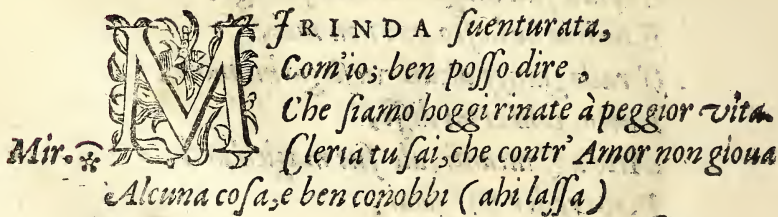 MIRINDA ſuenturata,
Com'io; ben poſſo dire,
Che ſiamo hoggi rinate à peggior vita.
Mir. Cleria tu ſai, che contr' Amor non gioua
Alcuna coſa, e ben conobbi (ahi laſſa)